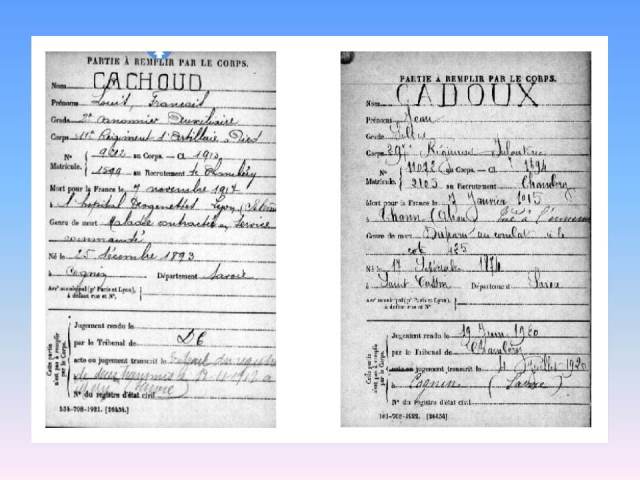 PARTIE À REMPLIR PAR LE CORPS.
Nom CACHOUD
Prénoms Louis, François
Grade 2e canonnier auxiliaire
Corps 11e Régiment d'Artillerie à Pied
N° 9612 au Corps. — Cl. 1913
Matricule. 1599 au Recrutement de Chambéry
Mort pour la France le 7 novembre 1917
à l'hôpital Desgenettes Lyon
Genre de mort Maladie contractée en service
commandé
Né le 25 décembre 1893
à Cognin Département Savoie
Arrt municipal (pr Paris et Lyon),
à défaut rue et N°.
Cette partie
n'est pas à remplir
par le Corps.
Jugement rendu le
par le Tribunal de
acte ou jugement transcrit le
N° du registre d'état civil
534-708-1921. [26434.]
PARTIE À REMPLIR PAR LE CORPS.
Nom CADOUX
Prénoms Jean
Grade
Corps 297e Régiment Infanterie
N° 11022 au Corps. — Cl. 1894
Matricule. 2105 au Recrutement Chambéry
Mort pour la France le Janvier 1915
à Thann (Alsace) à l'ennemi
Genre de mort Disparu au combat de la
cote 425
Né le 17 Septembre 1874
à Saint Cassin Département Savoie
Arrt municipal (pr Paris et Lyon),
à défaut rue et N°.
Cette partie
n'est pas à remplir
par le Corps.
Jugement rendu le 19 Juin 1920
par le Tribunal de Chambéry
acte ou jugement transcrit le 4 Juillet 1920
à Cognin (Savoie)
N° du registre d'état civil
[26434]